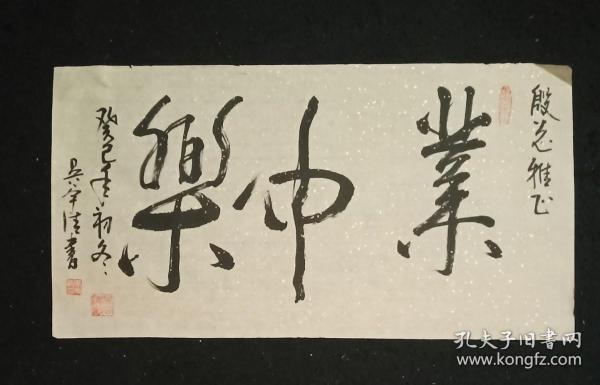 殷总雅正
業中樂
癸巳年初冬
吴华清书
孔夫子旧书网
www.kongfz.com